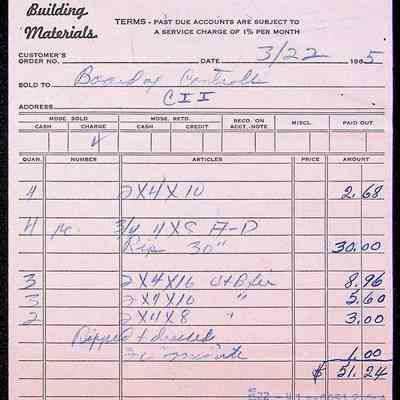 Building
Materials
TERMS - PAST DUE ACCOUNTS ARE SUBJECT TO
A SERVICE CHARGE OF 1% PER MONTH
CUSTOMER'S
ORDER NO. DATE 3/22 1965
SOLD TO Board of Controls
ADDRESS CII
MDSE. SOLD MDSE. RETD. REC'D. ON ACCT.-NOTE MISCL. PAID OUT
CASH CHARGE CASH CREDIT
4
QUAN. NUMBER ARTICLES PRICE AMOUNT
4 2X4X10 2.68
4 pc. 3/4 4X8 A-D
Rip 30" 30.00
3 2X4X16 8.96
3 2X4X10 " 5.60
2 2X4X8 " 3.00
Ripped & dressed
1.00
$ 51.24